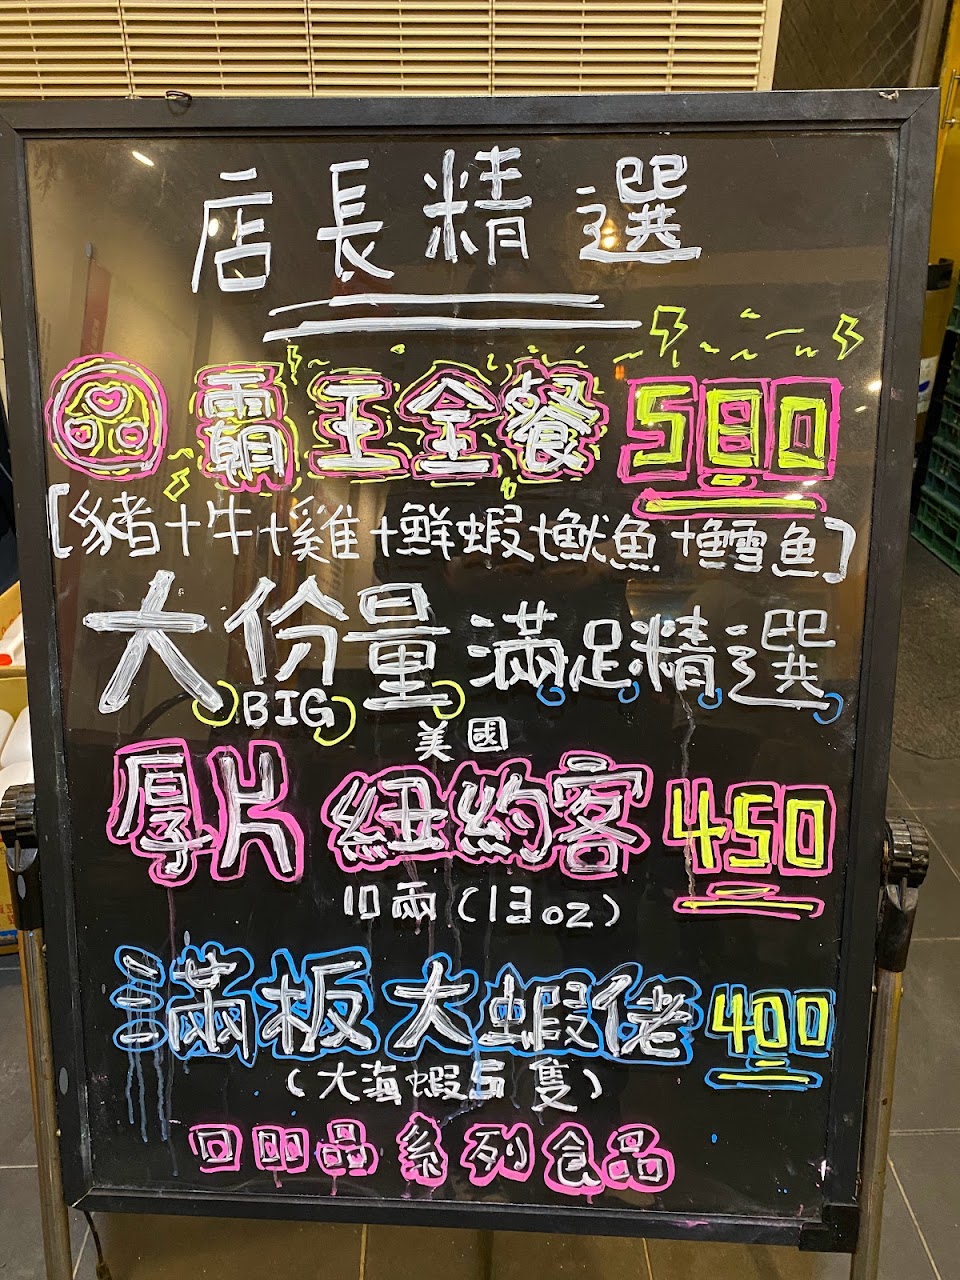 店長精選
霸王全餐 580
[豬+牛+雞+鮮蝦+魷魚+鱈魚]
大份量滿足精選
BIG
美國
厚片 紐約客 450
10兩(13oz)
滿板大蝦佬 400
(大海蝦5隻)
口吅品系列食品